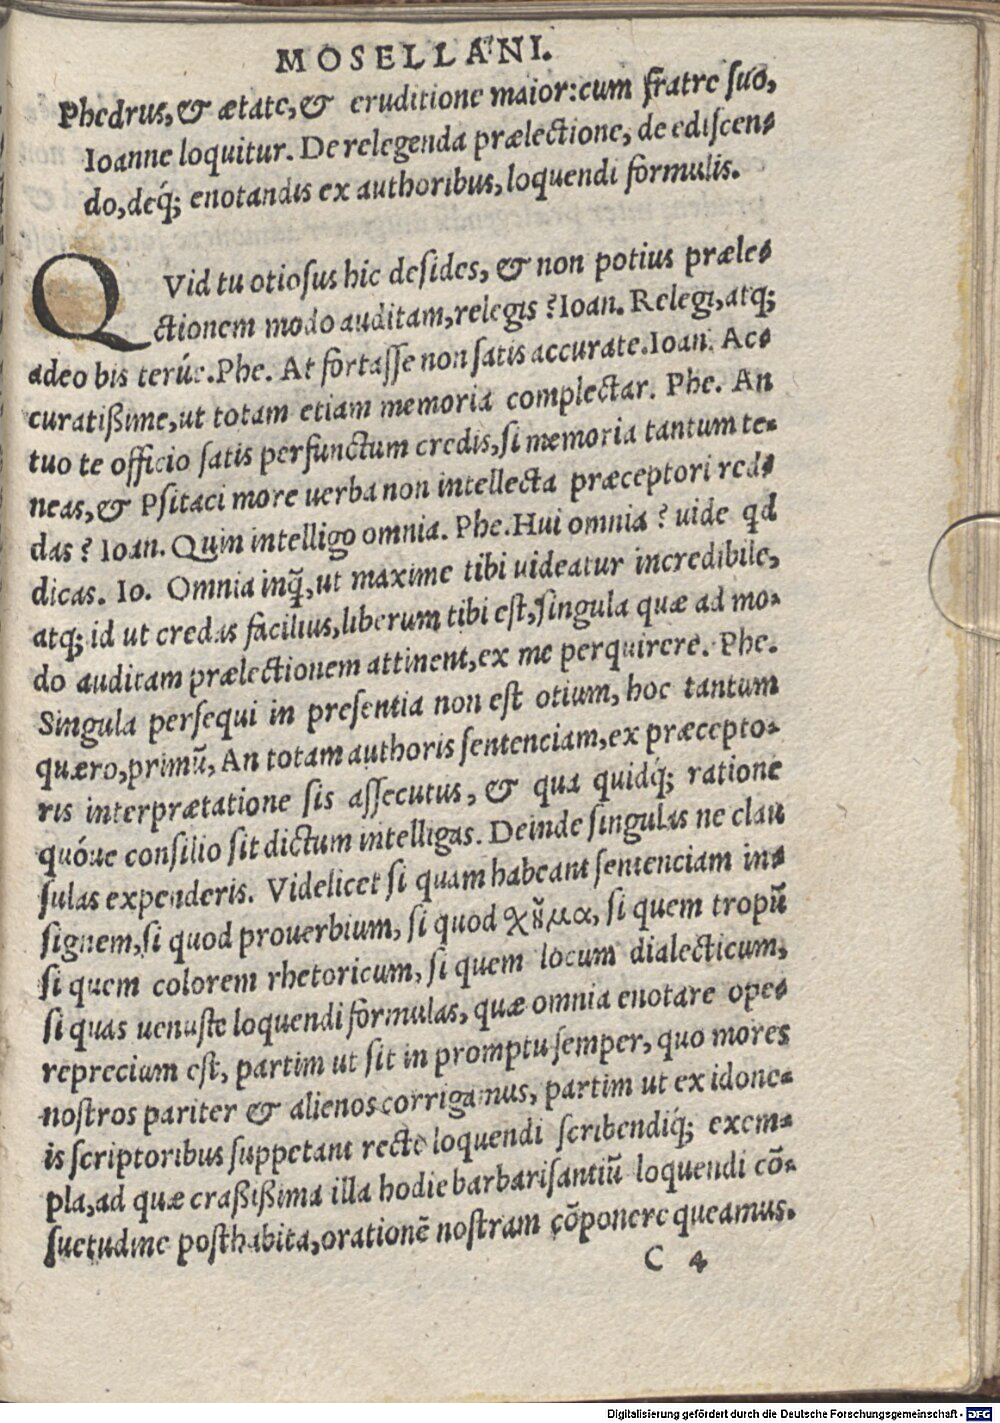 MOSELLANI.
Phedrus, & ætate, & eruditione maior: cum fratre suo,
Ioanne loquitur. De relegenda prælectione, de ediscen-
do, deq́; enotandis ex authoribus, loquendi formulis.
QVid tu otiosus hic desides, & non potius præle-
ctionem modo auditam, relegis? Ioan. Relegi, atq;
adeo bis terúe. Phe. At fortasse non satis accurate. Ioan. Ac-
curatißime, ut totam etiam memoria complectar. Phe. An
tuo te officio satis perfunctum credis, si memoria tantum te-
neas, & Psitaci more uerba non intellecta præceptori red-
das? Ioan. Quin intelligo omnia. Phe. Hui omnia? uide qd
dicas. Io. Omnia inq̃, ut maxime tibi uideatur incredibile,
atq; id ut credas facilius, liberum tibi est, singula quæ ad mo-
do auditam prælectionem attinent, ex me perquirere. Phe.
Singula persequi in presentia non est otium, hoc tantum
quæro, primũ, An totam authoris sentenciam, ex præcepto-
ris interprætatione sis assecutus, & qua quidq́; ratione
quóue consilio sit dictum intelligas. Deinde singulas ne clau
sulas expenderis. Videlicet si quam habeant sentenciam in-
signem, si quod prouerbium, si quod χῆμα, si quem tropũ
si quem colorem rhetoricum, si quem locum dialecticum,
si quas uenuste loquendi formulas, quæ omnia enotare ope-
reprecium est, partim ut sit in promptu semper, quo mores
nostros pariter & alienos corrigamus, partim ut ex idone-
is scriptoribus suppetant recte loquendi scribendiq́; exem-
pla, ad quæ craßißima illa hodie barbarisantiũ loquendi cõ-
suetudine posthabita, orationẽ nostram cõponere queamus.
C 4
Digitalisierung gefördert durch die Deutsche Forschungsgemeinschaft - DFG